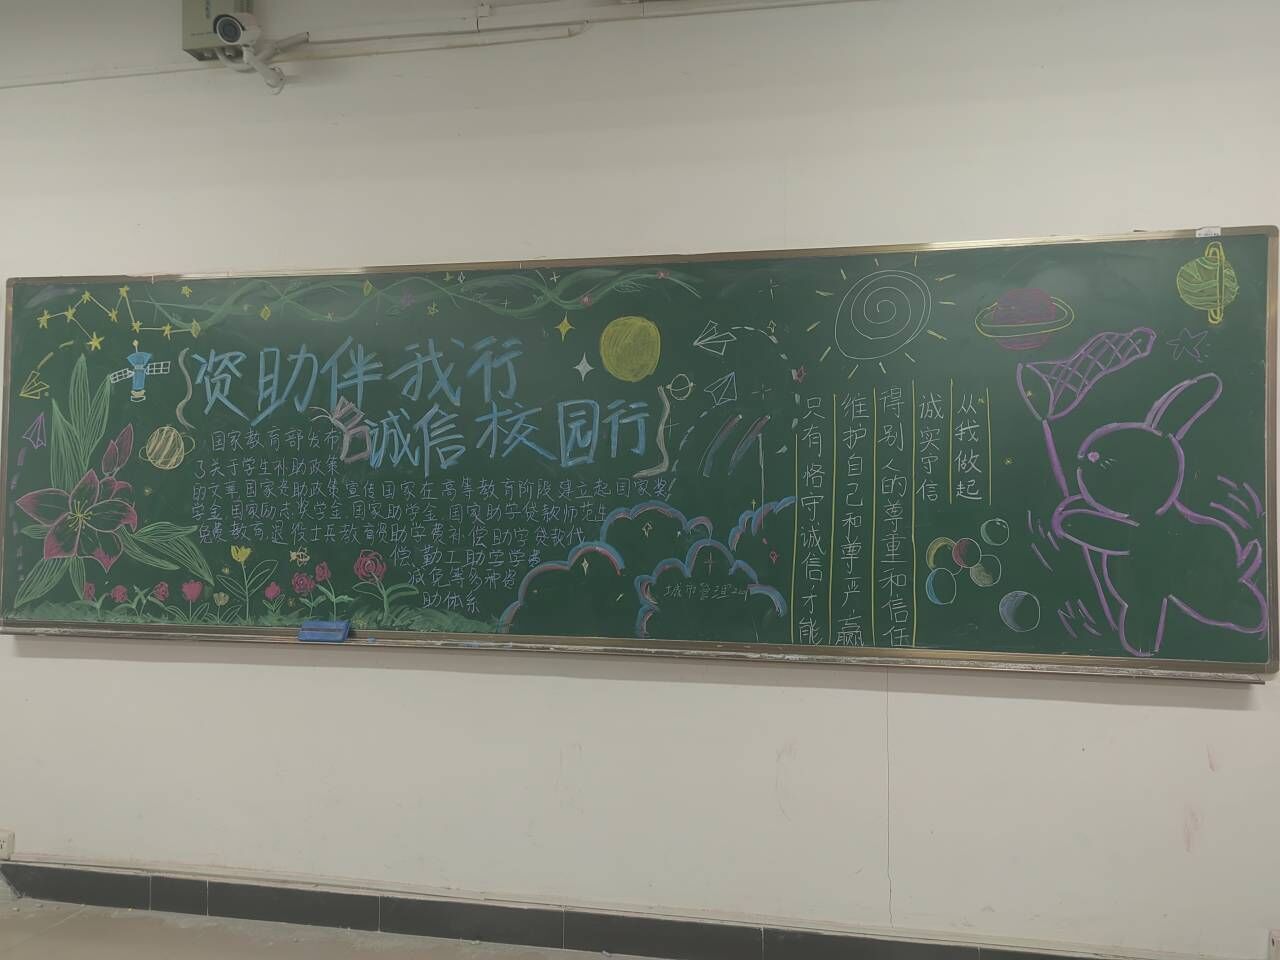 资助伴我行
诚信校园行
国家教育部发布
了关于学生补助政策
的文章国家资助政策宣传国家在高等教育阶段建立起国家奖
学金国家励志奖学金国家助学金国家助学贷款师范生
免费教育退役士兵教育资助学费补偿助学贷款代
偿勤工助学学费
减免等多种资
助体系
城市管理
从我做起
诚实守信
得别人的尊重和信任
维护自己和尊严赢
只有恪守诚信才能